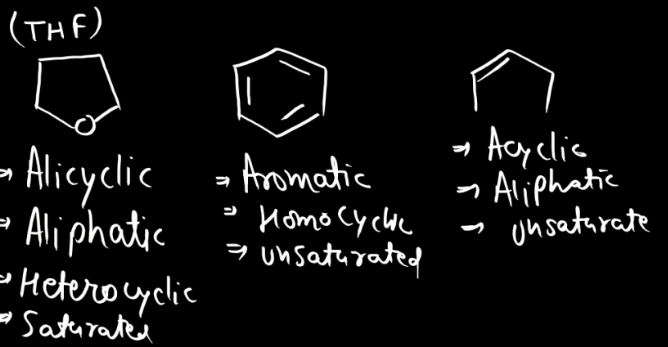 (THF)
O
⇒ Alicyclic
⇒ Aliphatic
⇒ Heterocyclic
⇒ Saturated
⇒ Aromatic
⇒ Homocyclic
⇒ Unsaturated
⇒ Acyclic
⇒ Aliphatic
⇒ Unsaturate